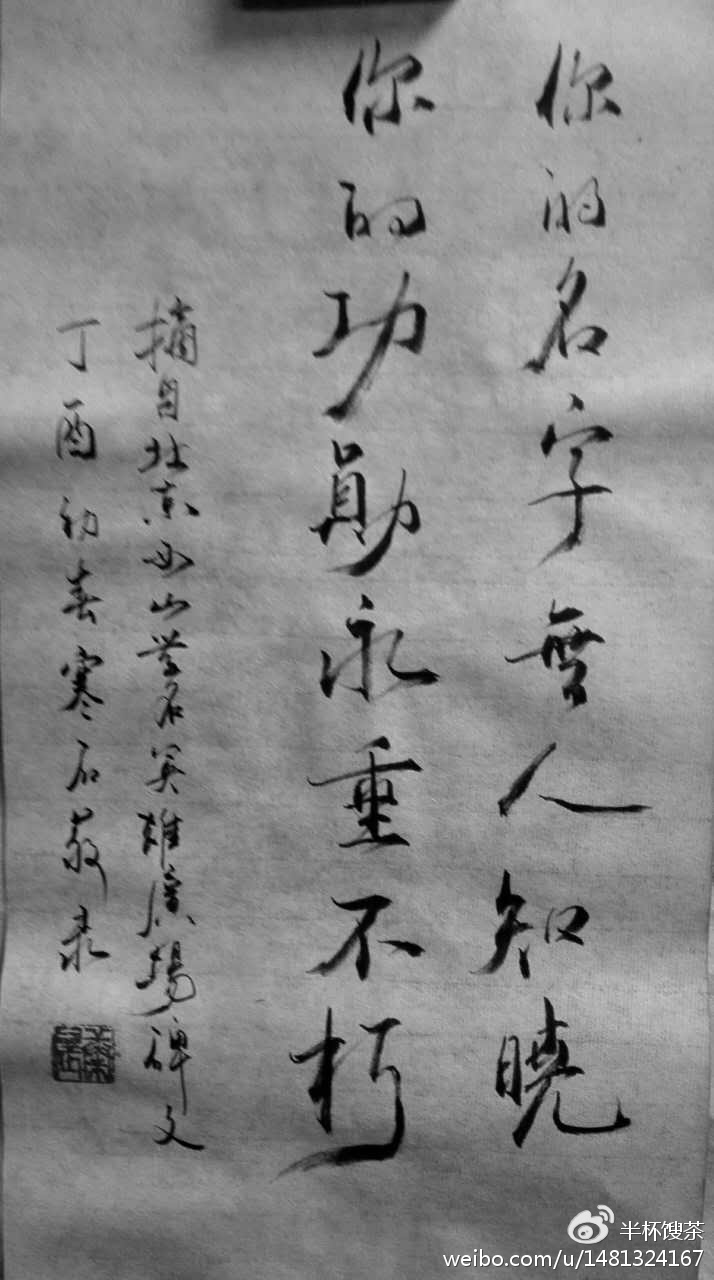 你的名字無人知曉
你的功勛永垂不朽
摘自北京西山無名英雄廣場碑文
丁酉初春寒石敬录
半杯馊茶
weibo.com/u/1481324167